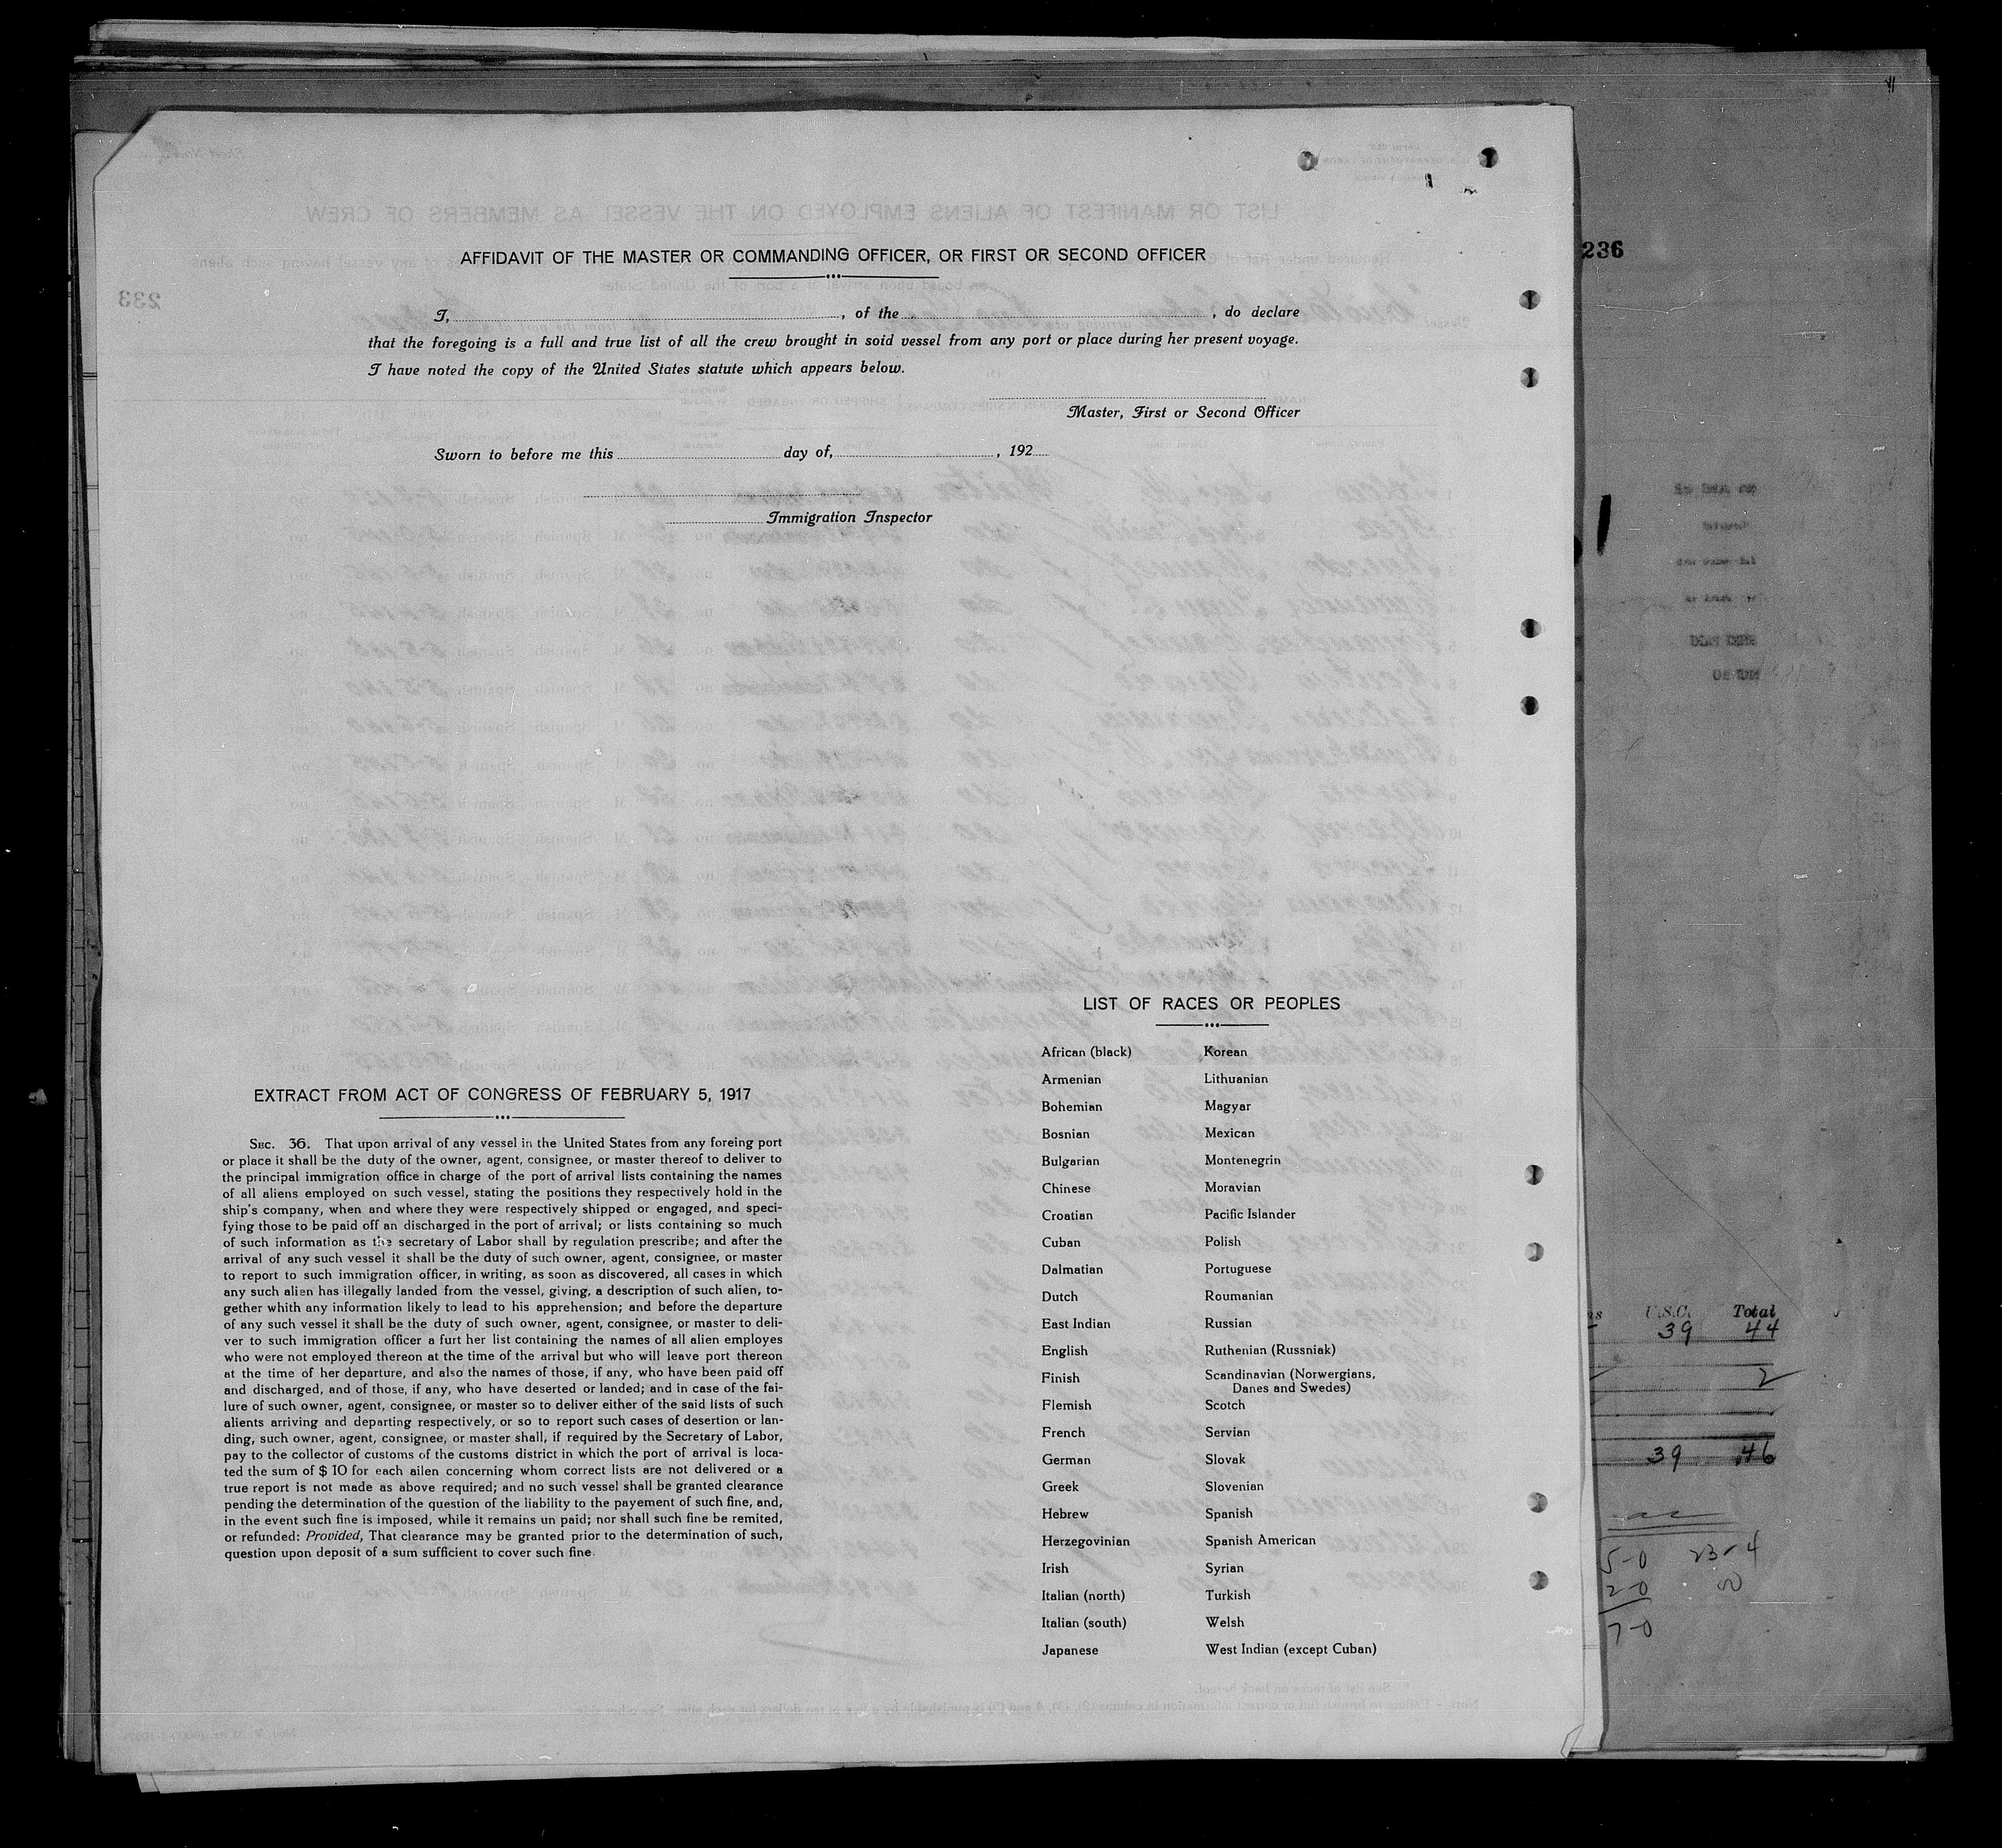 AFFIDAVIT OF THE MASTER OR COMMANDING OFFICER, OR FIRST OR SECOND OFFICER
I, , of the , do declare
that the foregoing is a full and true list of all the crew brought in soid vessel from any port or place during her present voyage.
I have noted the copy of the United States statute which appears below.
Master, First or Second Officer
Sworn to before me this day of, , 192
Immigration Inspector
EXTRACT FROM ACT OF CONGRESS OF FEBRUARY 5, 1917
SEC. 36. That upon arrival of any vessel in the United States from any foreing port
or place it shall be the duty of the owner, agent, consignee, or master thereof to deliver to
the principal immigration office in charge of the port of arrival lists containing the names
of all aliens employed on such vessel, stating the positions they respectively hold in the
ship's company, when and where they were respectively shipped or engaged, and speci-
fying those to be paid off an discharged in the port of arrival; or lists containing so much
of such information as the secretary of Labor shall by regulation prescribe; and after the
arrival of any such vessel it shall be the duty of such owner, agent, consignee, or master
to report to such immigration officer, in writing, as soon as discovered, all cases in which
any such alien has illegally landed from the vessel, giving, a description of such alien, to-
gether whith any information likely to lead to his apprehension; and before the departure
of any such vessel it shall be the duty of such owner, agent, consignee, or master to deli-
ver to such immigration officer a furt her list containing the names of all alien employes
who were not employed thereon at the time of the arrival but who will leave port thereon
at the time of her departure, and also the names of those, if any, who have been paid off
and discharged, and of those, if any, who have deserted or landed; and in case of the fai-
lure of such owner, agent, consignee, or master so to deliver either of the said lists of such
alients arriving and departing respectively, or so to report such cases of desertion or lan-
ding, such owner, agent, consignee, or master shall, if required by the Secretary of Labor,
pay to the collector of customs of the customs district in which the port of arrival is loca-
ted the sum of $ 10 for each ailen concerning whom correct lists are not delivered or a
true report is not made as above required; and no such vessel shall be granted clearance
pending the determination of the question of the liability to the payement of such fine, and,
in the event such fine is imposed, while it remains un paid; nor shall such fine be remited,
or refunded: Provided, That clearance may be granted prior to the determination of such,
question upon deposit of a sum sufficient to cover such fine.
LIST OF RACES OR PEOPLES
African (black)
Armenian
Bohemian
Bosnian
Bulgarian
Chinese
Croatian
Cuban
Dalmatian
Dutch
East Indian
English
Finish
Flemish
French
German
Greek
Hebrew
Herzegovinian
Irish
Italian (north)
Italian (south)
Japanese
Korean
Lithuanian
Magyar
Mexican
Montenegrin
Moravian
Pacific Islander
Polish
Portuguese
Roumanian
Russian
Ruthenian (Russniak)
Scandinavian (Norwergians,
Danes and Swedes)
Scotch
Servian
Slovak
Slovenian
Spanish
Spanish American
Syrian
Turkish
Welsh
West Indian (except Cuban)
236
U.S.C. Total
39 44
2
39 46
5-0 23-4
2-0
7-0